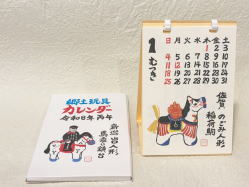 郷土玩具
カレンダー
令和8年 丙午
新潟 山口人形
馬乗り鎮台
1
むつき
日 月 火 水 木 金 土
1 2 3
4 5 6 7 8 9 10
11 12 13 14 15 16 17
18 19 20 21 22 23 24
25 26 27 28 29 30 31
佐賀 のごみ人形
稲荷駒